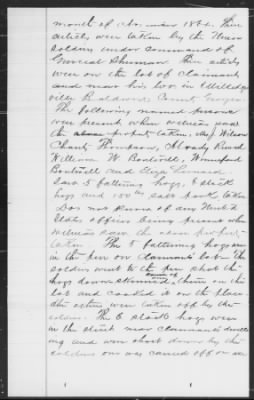 month of November 1864. Their
articles were taken by the Union
soldiers under command of
General Sherman. Their articles
were on the lot of claimant
and near his lot in Milledge-
ville Baldwin County Georgia.
The following named persons
were present when witness saw
the above property taken.
Charity Thompson, Moody
William W Boutwell, Winneford
Boutwell and Eliza Leonard
Saw 5 fattening hogs, 6 stock
hogs and salt pork taken
Does not know of any United
States officers being present when
witness saw the above property
taken. The 5 fattening hogs were
in the pen on claimants lot the
soldiers went to the pen shot the
hogs down skinned them on the
lot and cooked it on the place
the others were taken off by the
soldiers. The 6 stock hogs were
in the street near claimants dwell
ing and were shot down by the
soldiers one was carried off